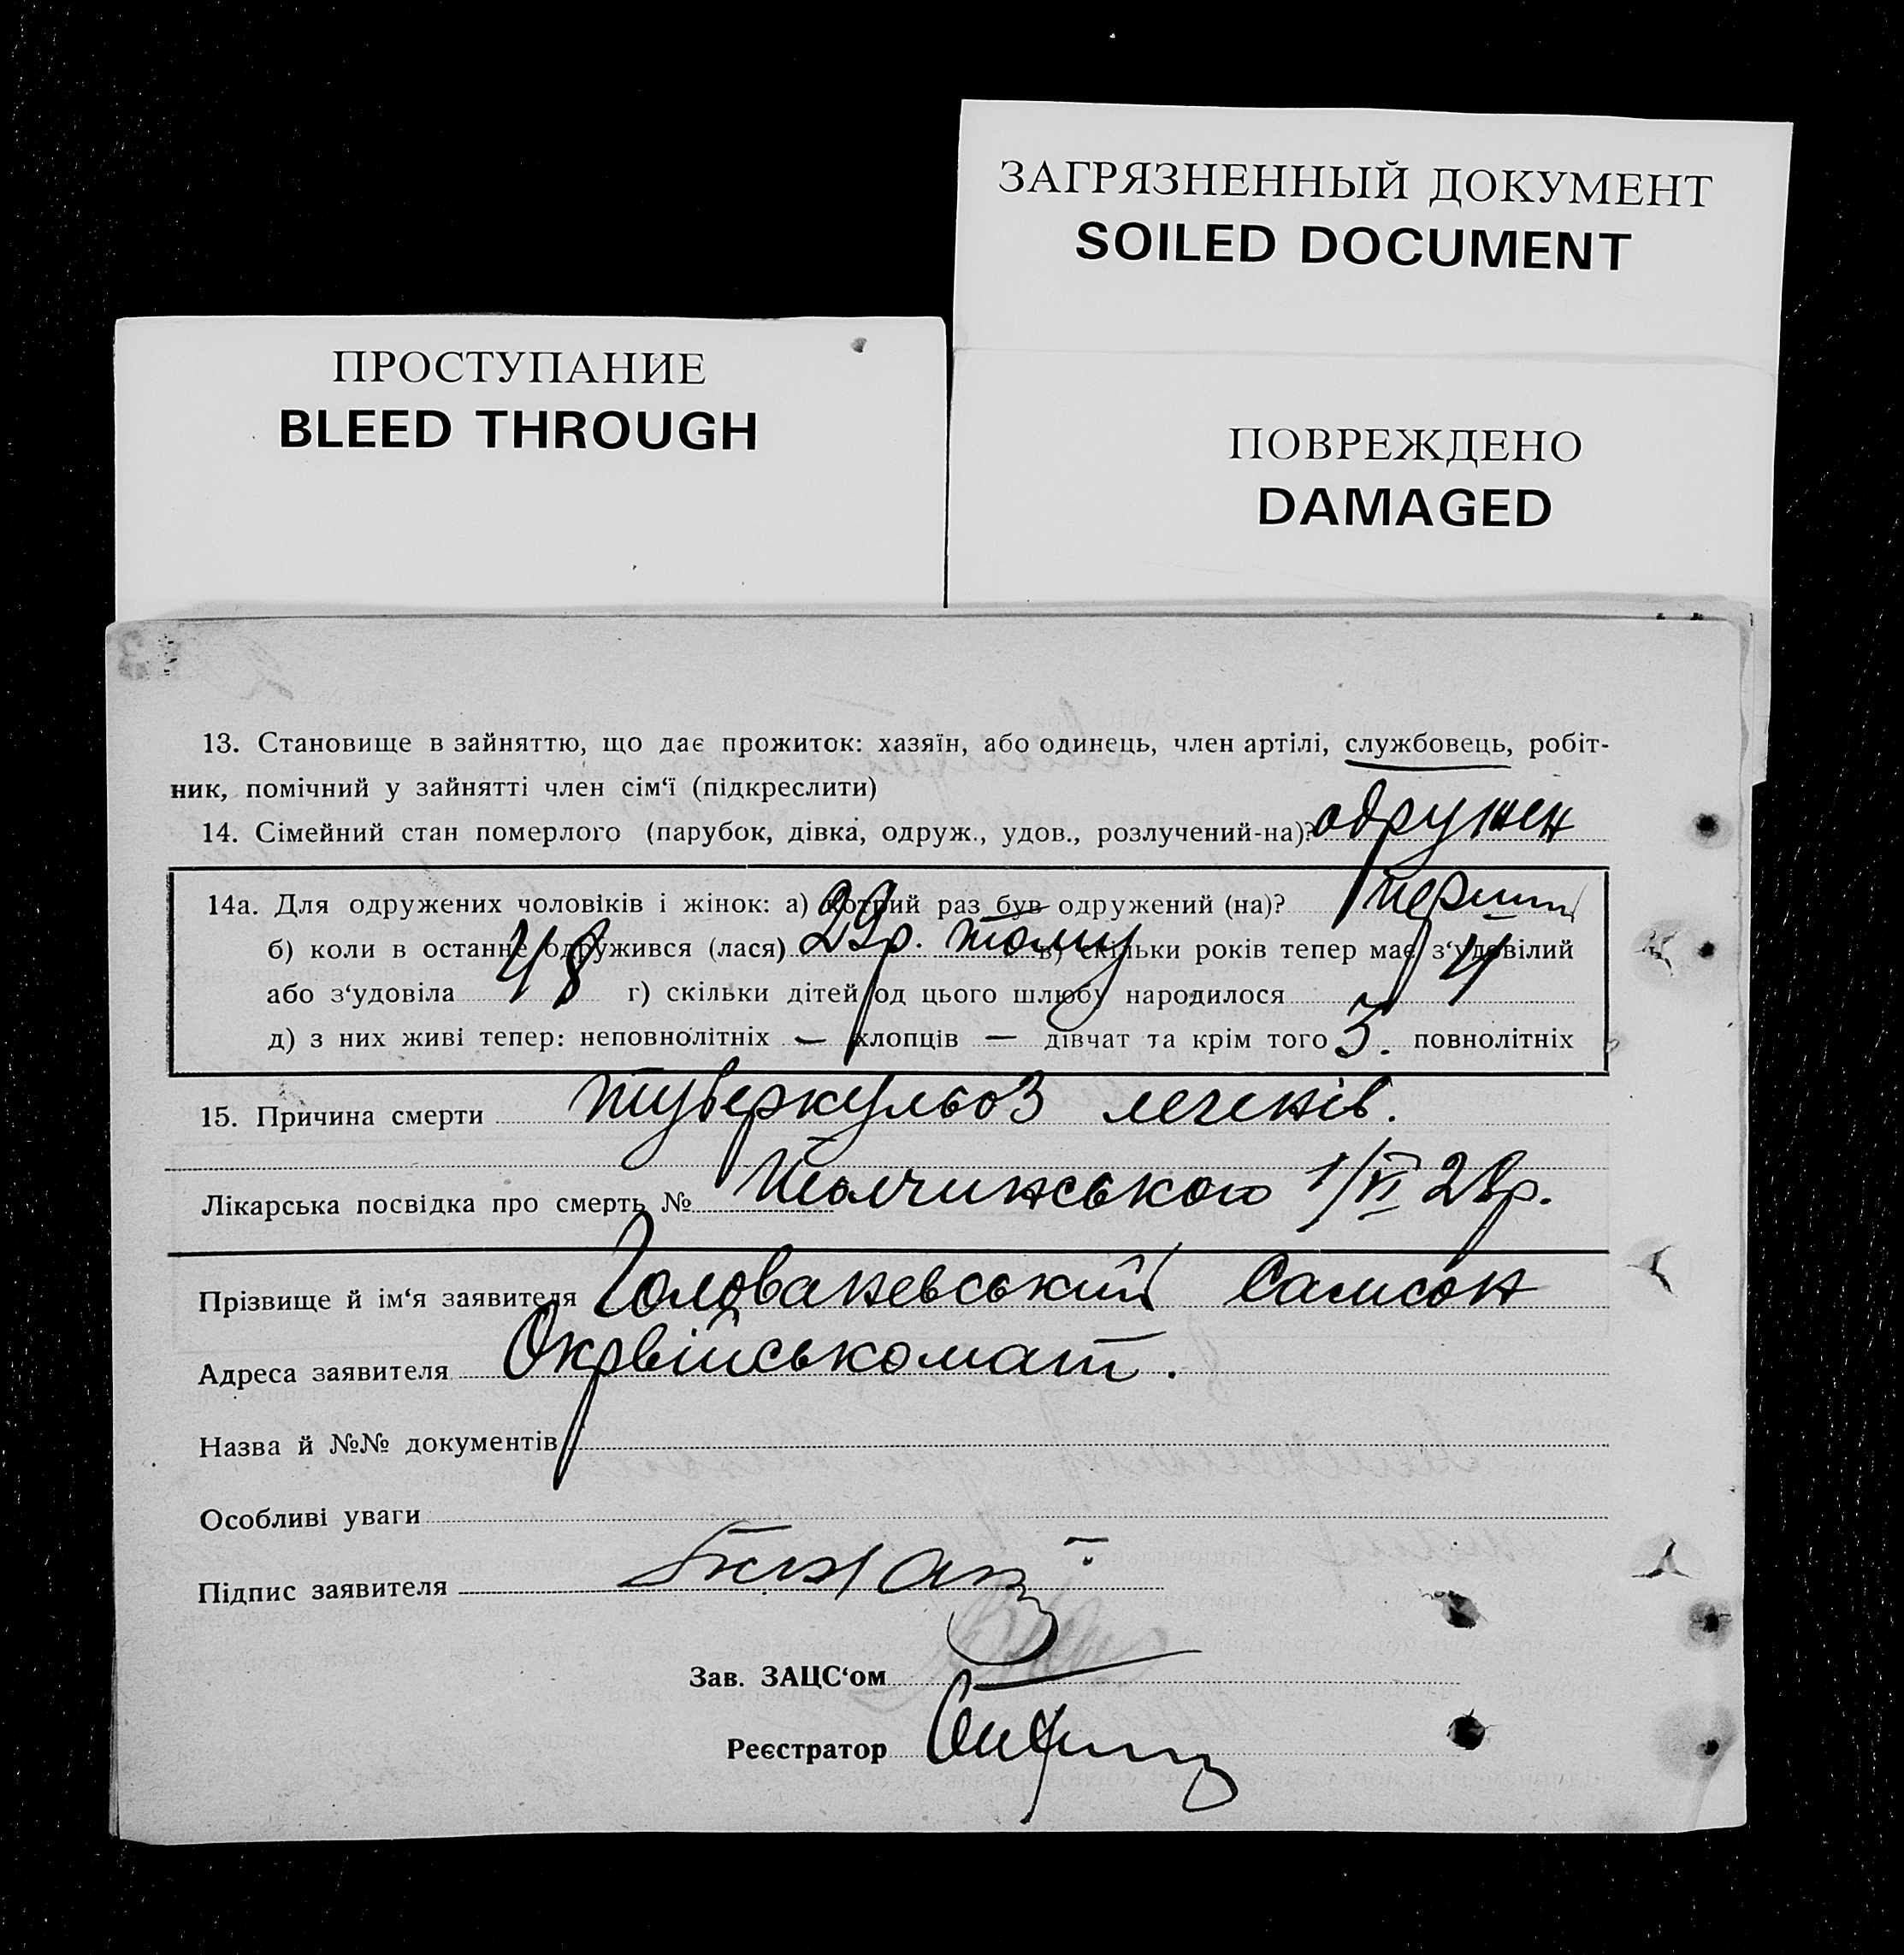 ЗАГРЯЗНЕННЫЙ ДОКУМЕНТ
SOILED DOCUMENT
ПРОСТУПАНИЕ
BLEED THROUGH
ПОВРЕЖДЕНО
DAMAGED
13. Становище в зайняттю, що дає прожиток: хазяїн, або одинець, член артілі, службовець, робіт-
ник, помічний у зайнятті член сім‘ї (підкреслити)
14. Сімейний стан померлого (парубок, дівка, одруж., удов., розлучений-на)? одружен
14а. Для одружених чоловіків і жінок: а) котрий раз був одружений (на)? перший
б) коли в останнє одружився (лася) 29р. тому в) скільки років тепер має з‘удовілий
або з‘удовіла 48 г) скільки дітей од цього шлюбу народилося 4
д) з них живі тепер: неповнолітніх — хлопців — дівчат та крім того 3. повнолітніх
15. Причина смерти туберкульоз легенів.
Лікарська посвідка про смерть № 1/VI 28р.
Прізвище й ім‘я заявителя Голованевський Самсон
Адреса заявителя Окрвійськомат.
Назва й №№ документів
Особливі уваги
Підпис заявителя
Зав. ЗАЦС‘ом
Реєстратор